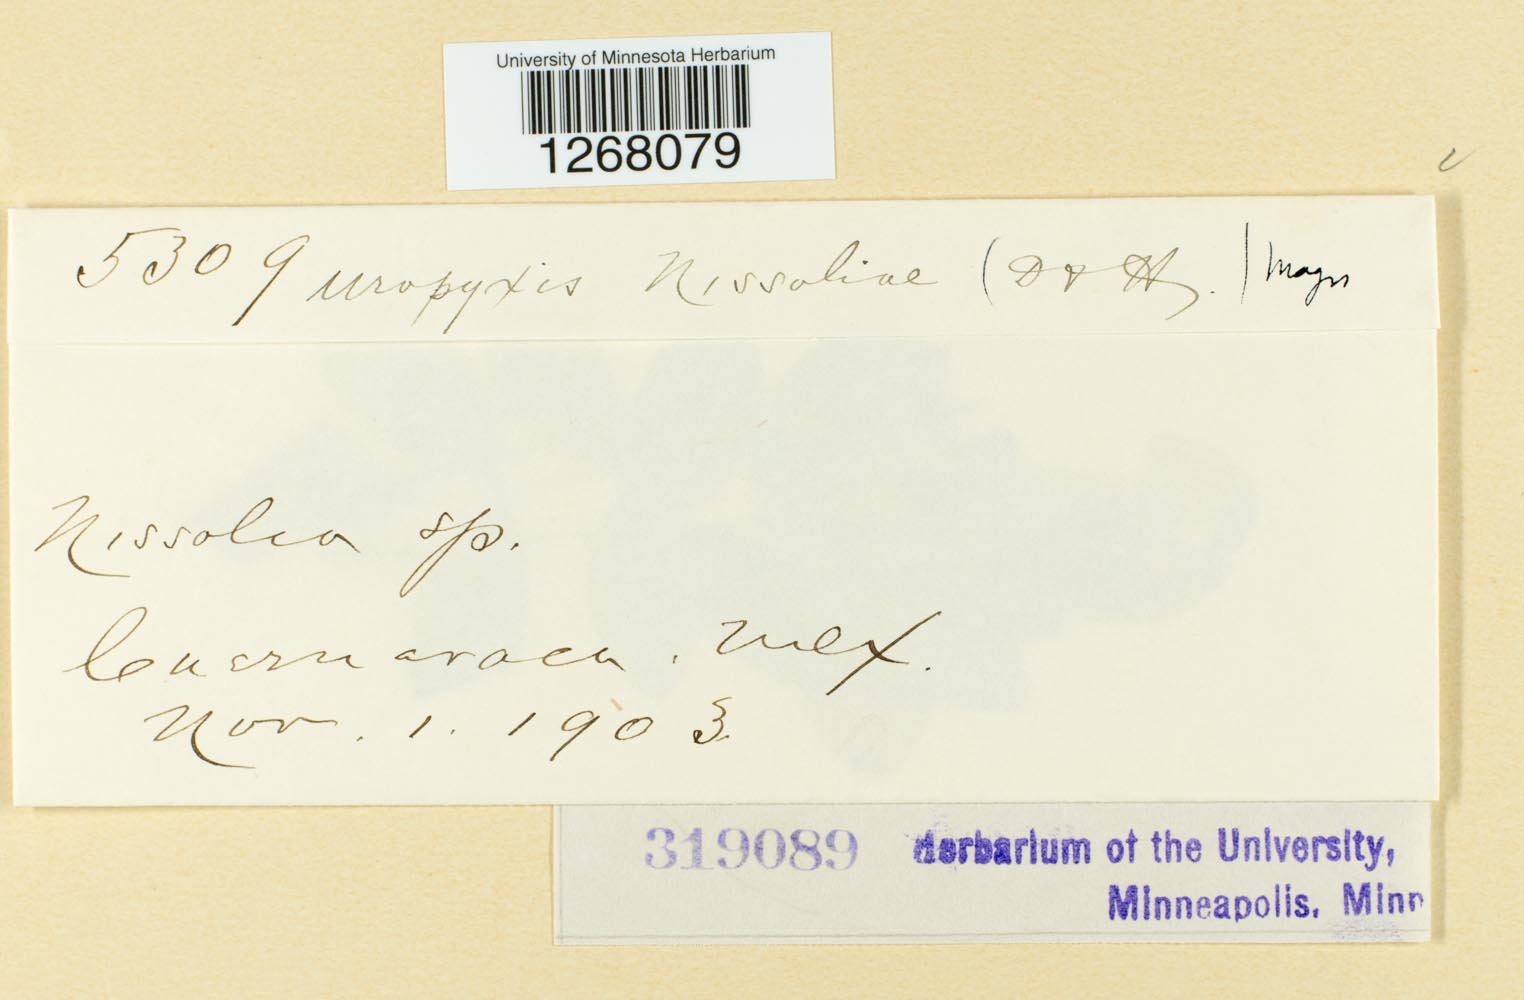 University of Minnesota Herbarium
1268079
5309 Uropyxis Nissoliae (D & H.) Magn
Nissolia sp.
Cuernavaca. Mex.
Nov. 1. 1903
319089 Herbarium of the University,
Minneapolis, Minn